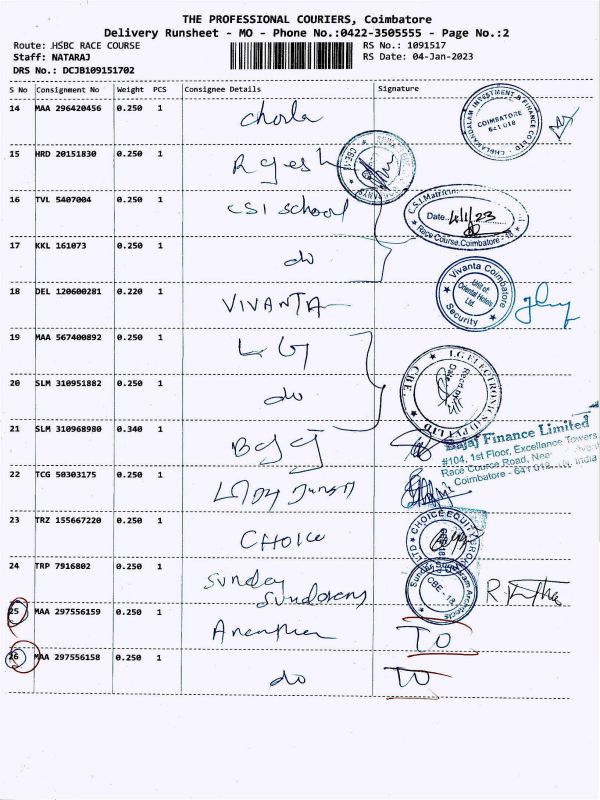 THE PROFESSIONAL COURIERS, Coimbatore
Delivery Runsheet - MO - Phone No.:0422-3505555 - Page No.:2
Route: HSBC RACE COURSE
RS No.: 1091517
Staff: NATARAJ
RS Date: 04-Jan-2023
DRS No.: DCJB109151702
S No Consignment No Weight PCS Consignee Details Signature
14 MAA 296420456 0.250 1 Chola
CHOLAMANDALAM INVESTMENT & FINANCE CO LTD
COIMBATORE
641 018
15 HRD 20151830 0.250 1 Rajesh
16 TVL 5407004 0.250 1 CSI School
C.S.I.Matricu
Date 4/1/23
Race Course, Coimbatore - 18
17 KKL 161073 0.250 1 do
18 DEL 120600281 0.220 1 VIVANTA
Vivanta Coimbatore
Unit of
Oriental Hotels
Ltd.
Security
19 MAA 567400892 0.250 1 LG
20 SLM 310951882 0.250 1 do
L.G. ELECTRONICS (I) PVT LTD
CBE.
Recd.by
Date
21 SLM 310968980 0.340 1 Bajaj
Bajaj Finance Limited
#104, 1st Floor, Excellance Towers
Race Course Road, Near
Coimbatore - 641 018. India
22 TCG 50303175 0.250 1
23 TRZ 155667220 0.250 1 CHOICE
CHOICE EQUITY BROK
24 TRP 7916802 0.250 1 Sunday
Sundaram
Architects
CBE - 18
25 MAA 297556159 0.250 1
TO
26 MAA 297556158 0.250 1 do
TO